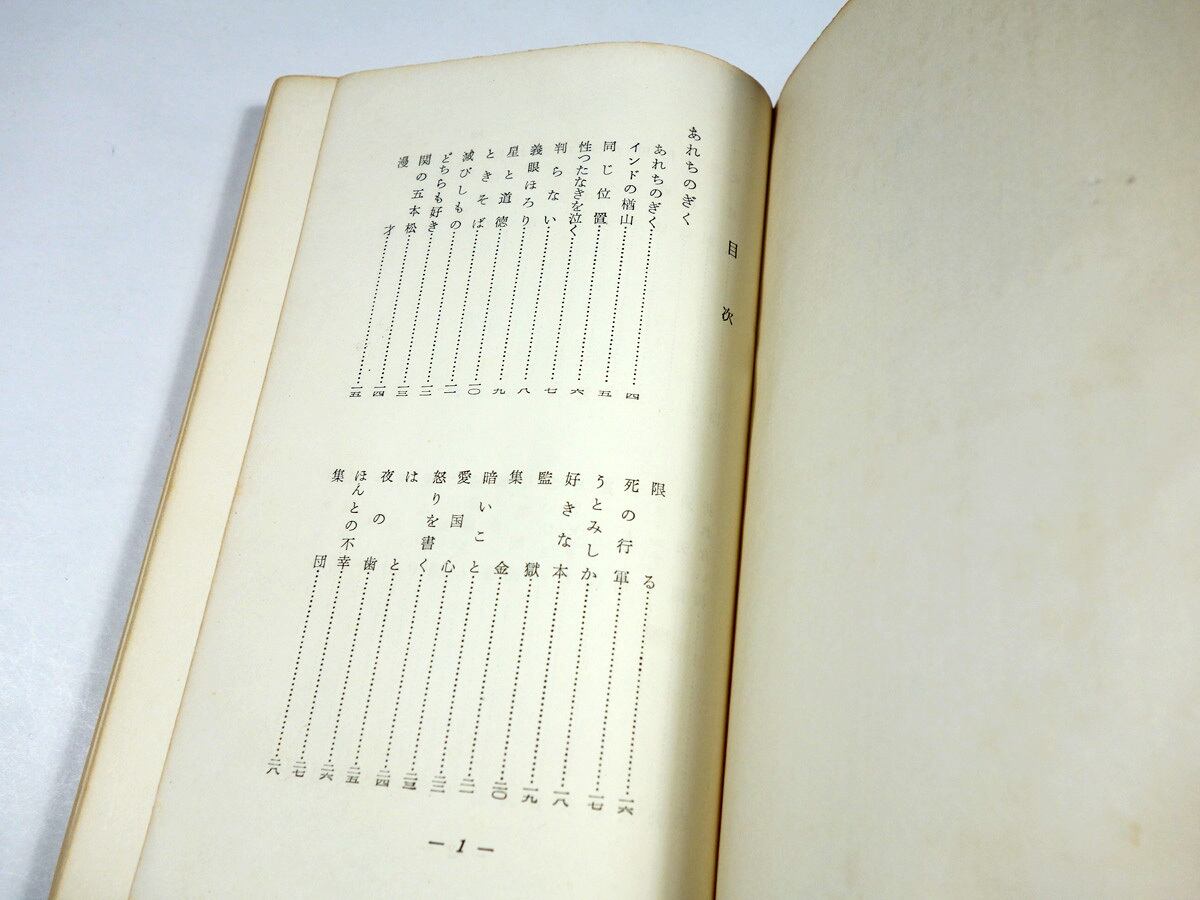 目次
あれちのぎく
あれちのぎく……四
インドの楢山……五
同じ位置……六
性つたなきを泣く……七
判らない……八
義眼ほろり……九
星と道徳……一〇
ときそば……一一
滅びしもの……一二
どちらも好き……一三
関の五本松……一四
漫才……一五
限る……一六
死の行軍……一七
うとみしか……一八
好きな本……一九
監獄……二〇
集金……二一
暗いこと……二二
愛国心……二三
怒りを書く……二四
はと……二五
夜の歯……二六
ほんとの不幸……二七
集団……二八
— 1 —